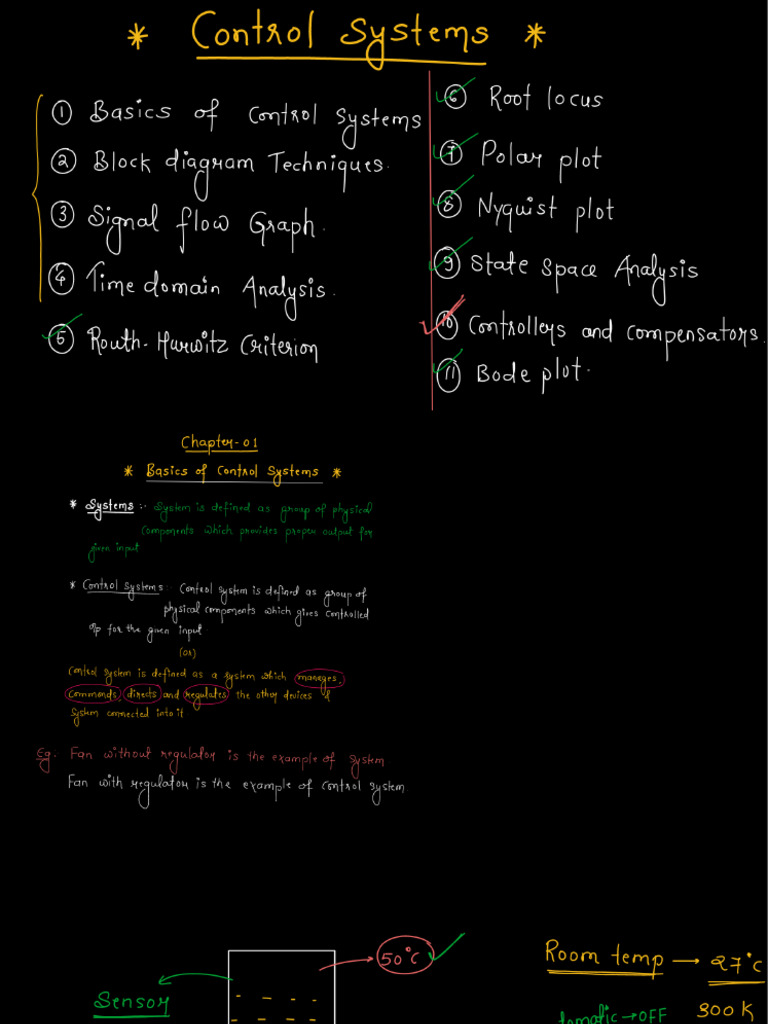 * Control Systems *
① Basics of Control Systems
② Block diagram Techniques.
③ Signal flow Graph.
④ Time domain Analysis.
⑤ Routh-Hurwitz Criterion
⑥ Root locus
⑦ Polar plot
⑧ Nyquist plot
⑨ State Space Analysis
⑩ Controllers and compensators.
⑪ Bode plot.
Chapter-01
* Basics of Control Systems *
* Systems :- System is defined as group of physical
components which provides proper output for
given input
* Control systems :- Control system is defined as group of
physical components which gives controlled
o/p for the given input
(or)
Control system is defined as a system which manages,
commands, directs and regulates the other devices &
System connected into it
Eg: Fan without regulator is the example of system
Fan with regulator is the example of control system
50°C
Sensor
Room temp → 27°C
300 K
tomatic → OFF